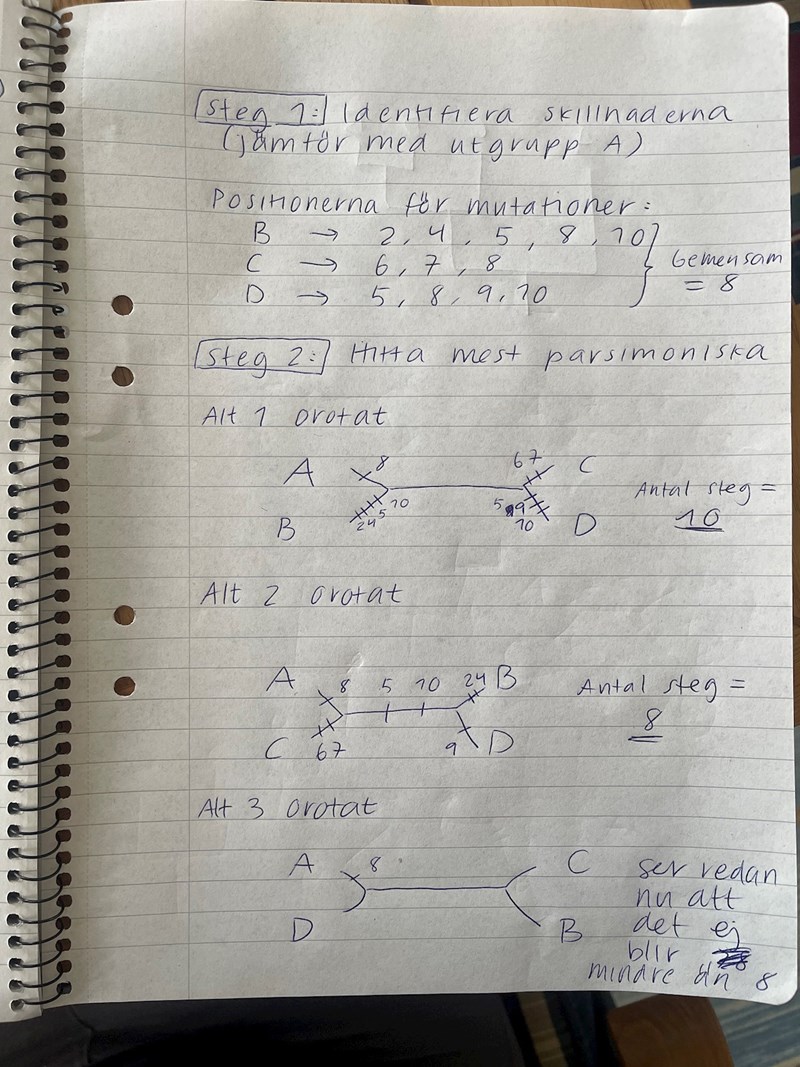 Steg 1: Identifiera skillnaderna
(jämför med utgrupp A)
Positionerna för mutationer:
B → 2, 4, 5, 8, 10
C → 6, 7, 8
D → 5, 8, 9, 10
Gemensam
= 8
Steg 2: Hitta mest parsimoniska
Alt 1 orotat
A 8 67 C
B 24 5 10 5 9 10 D
Antal steg =
10
Alt 2 orotat
A 8 5 10 24 B
C 67 9 D
Antal steg =
8
Alt 3 orotat
A 8 C
D B
ser redan
nu att
det ej
blir
mindre än 8